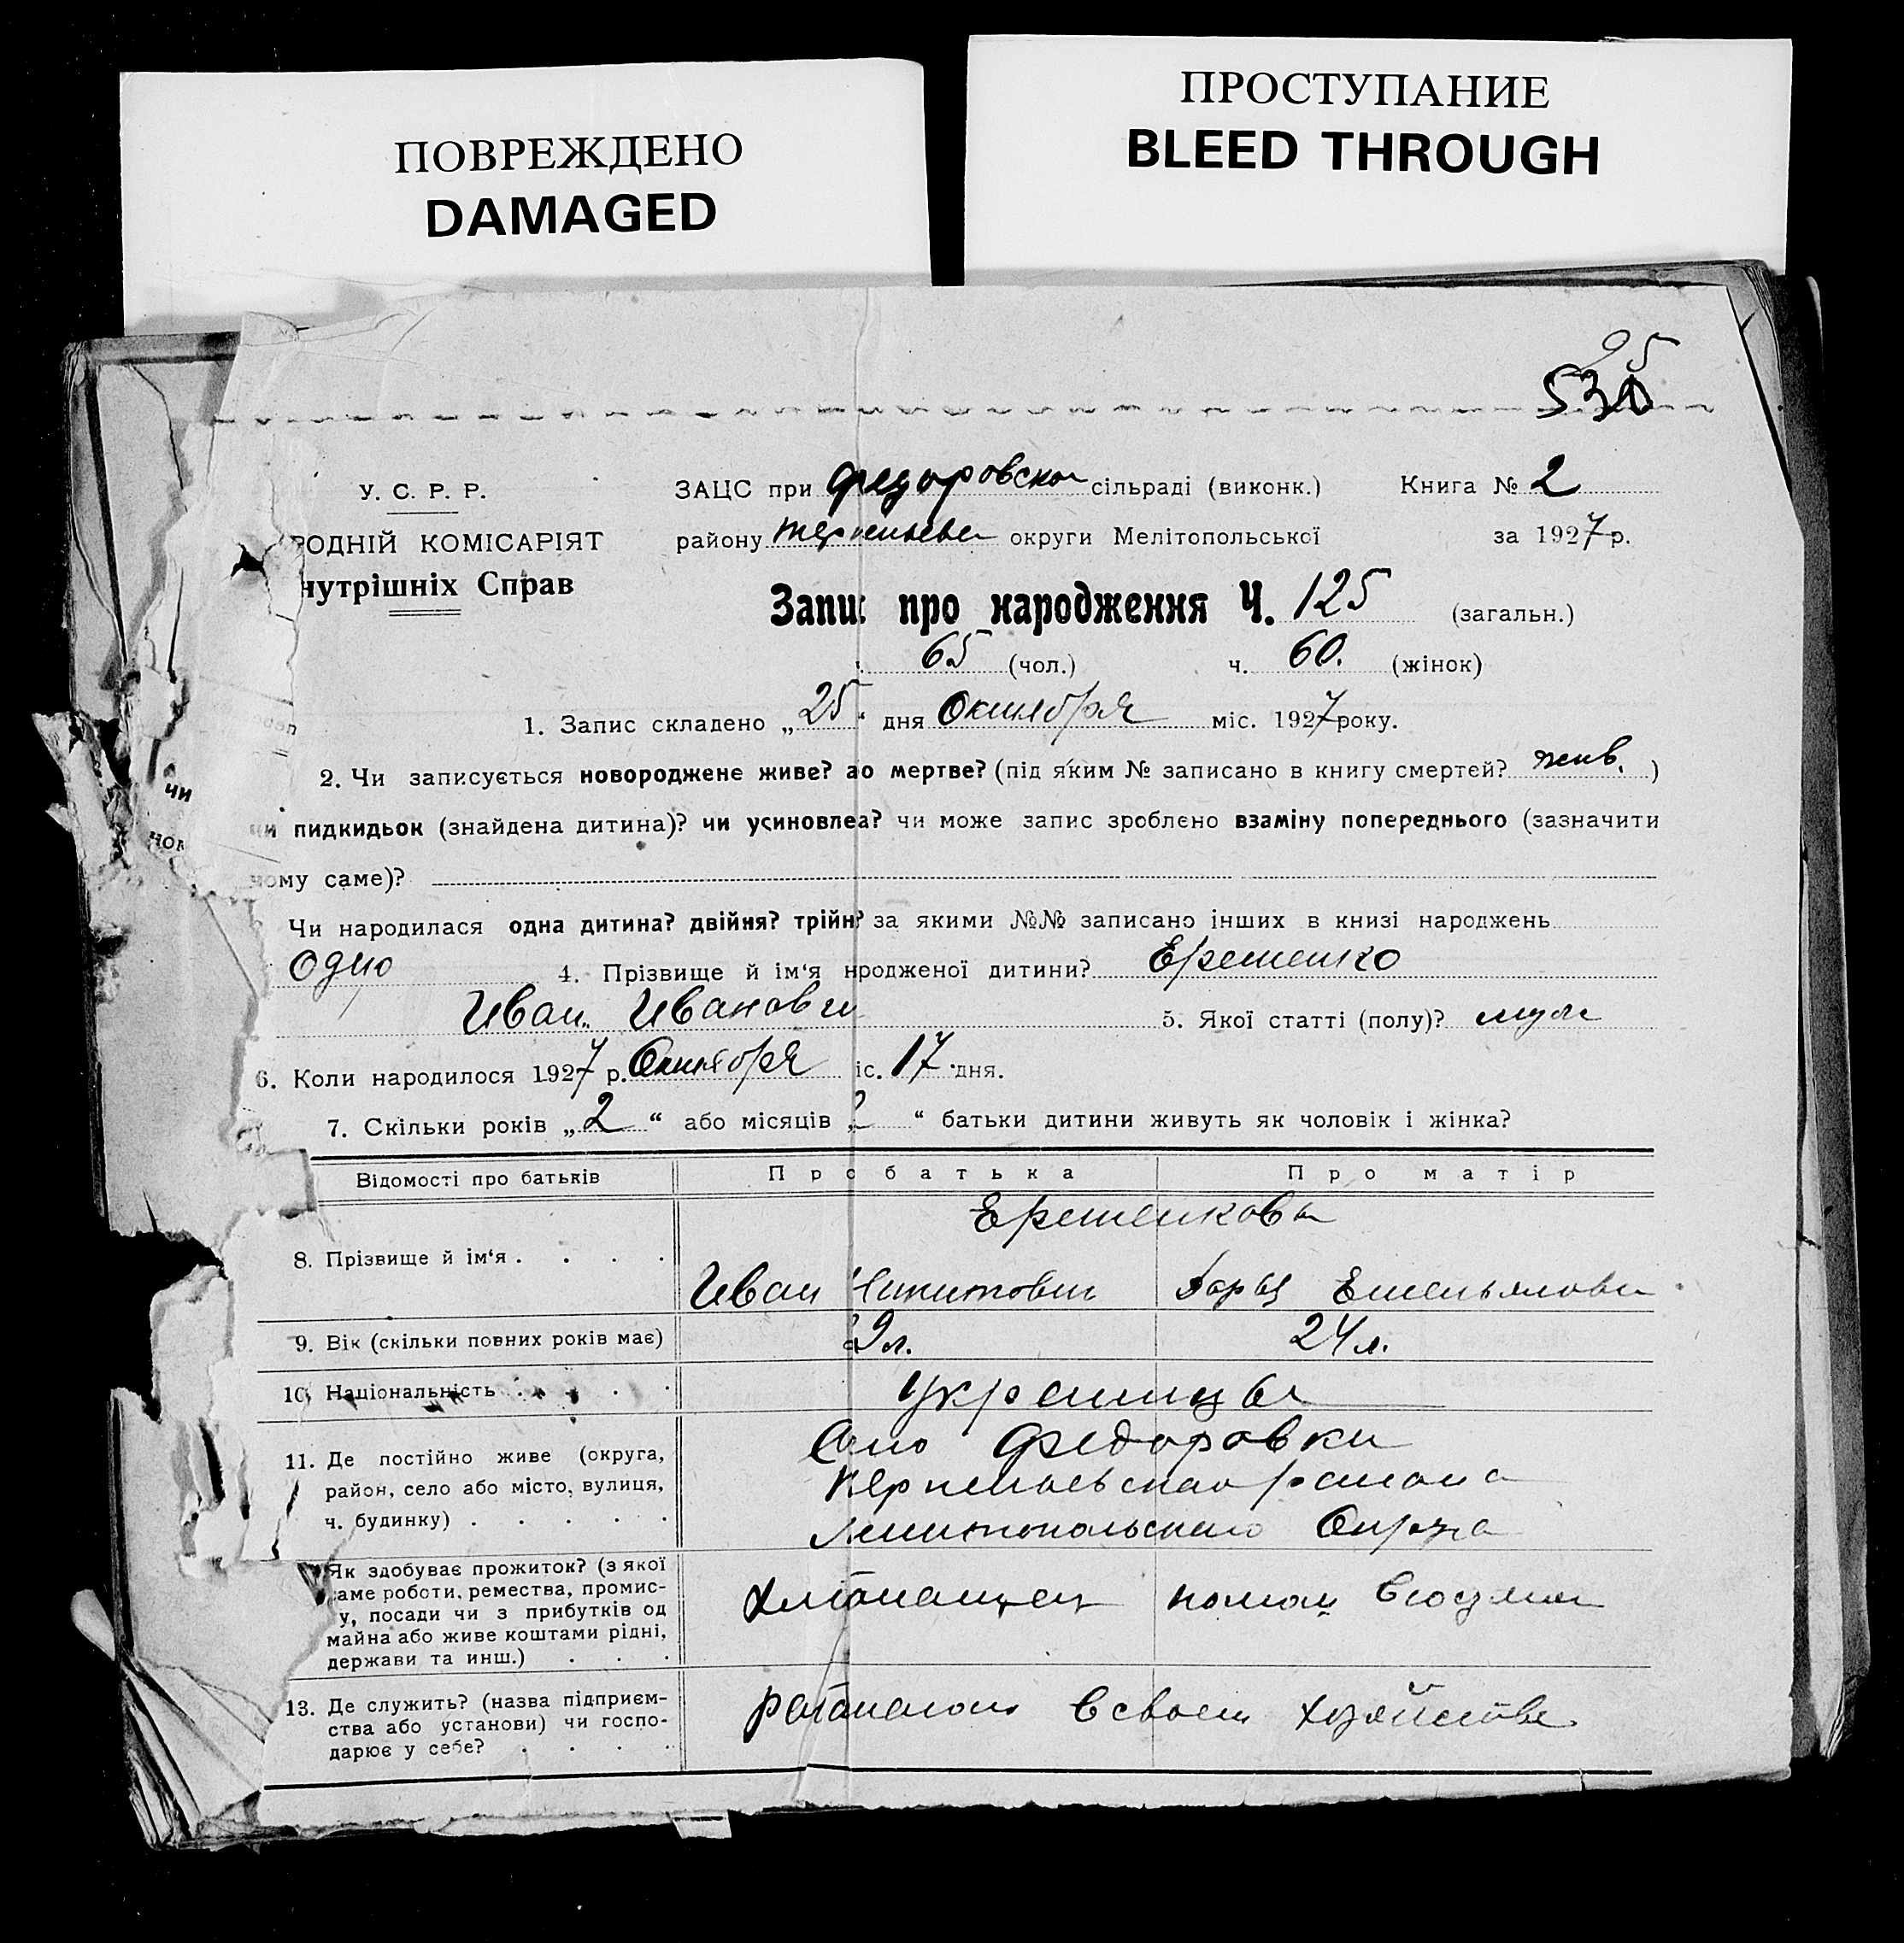 ПОВРЕЖДЕНО
DAMAGED
ПРОСТУПАНИЕ
BLEED THROUGH
95
530
У. С. Р. Р.
ЗАЦС при Федоровской сільраді (виконк.) Книга № 2
РОДНІЙ КОМІСАРІЯТ
району округи Мелітопольської за 1927 р.
нутрішніх Справ
Запис про народження Ч. 125 (загальн.)
65 (чол.) ч. 60. (жінок)
1. Запис складено „25“ дня Октября міс. 1927 року.
2. Чи записується новороджене живе? ао мертве? (під яким № записано в книгу смертей? жив. )
чи пидкидьок (знайдена дитина)? чи усиновлеа? чи може запис зроблено взаміну попереднього (зазначити
чому саме)?
Чи народилася одна дитина? двійня? трійн? за якими №№ записано інших в книзі народжень
Одно 4. Прізвище й ім‘я нродженої дитини? Еременко
Иван Иванович 5. Якої статті (полу)? муж
6. Коли народилося 1927 р. Октября іс. 17 дня.
7. Скільки років „2“ або місяців „2“ батьки дитини живуть як чоловік і жінка?
Відомості про батьків Про батька Про матір
Еременковы
8. Прізвище й ім‘я . . . . Иван Никитович Дарья Емельяновна
9. Вік (скільки повних років має) 29 л. 24 л.
10. Національність . . . . украинцы
11. Де постійно живе (округа, район, село або місто, вулиця, ч. будинку) . . . . .
Село Федоровки
района
Мелитопольского Округа
Як здобуває прожиток? (з якої
саме роботи, ремества, промис-
у, посади чи з прибутків од
майна або живе коштами рідні,
держави та инш.) . . .
Хлебопашец помощ
13. Де служить? (назва підприєм-
ства або установи) чи госпо-
дарює у себе? . . . .
работают в своем хозяйстве